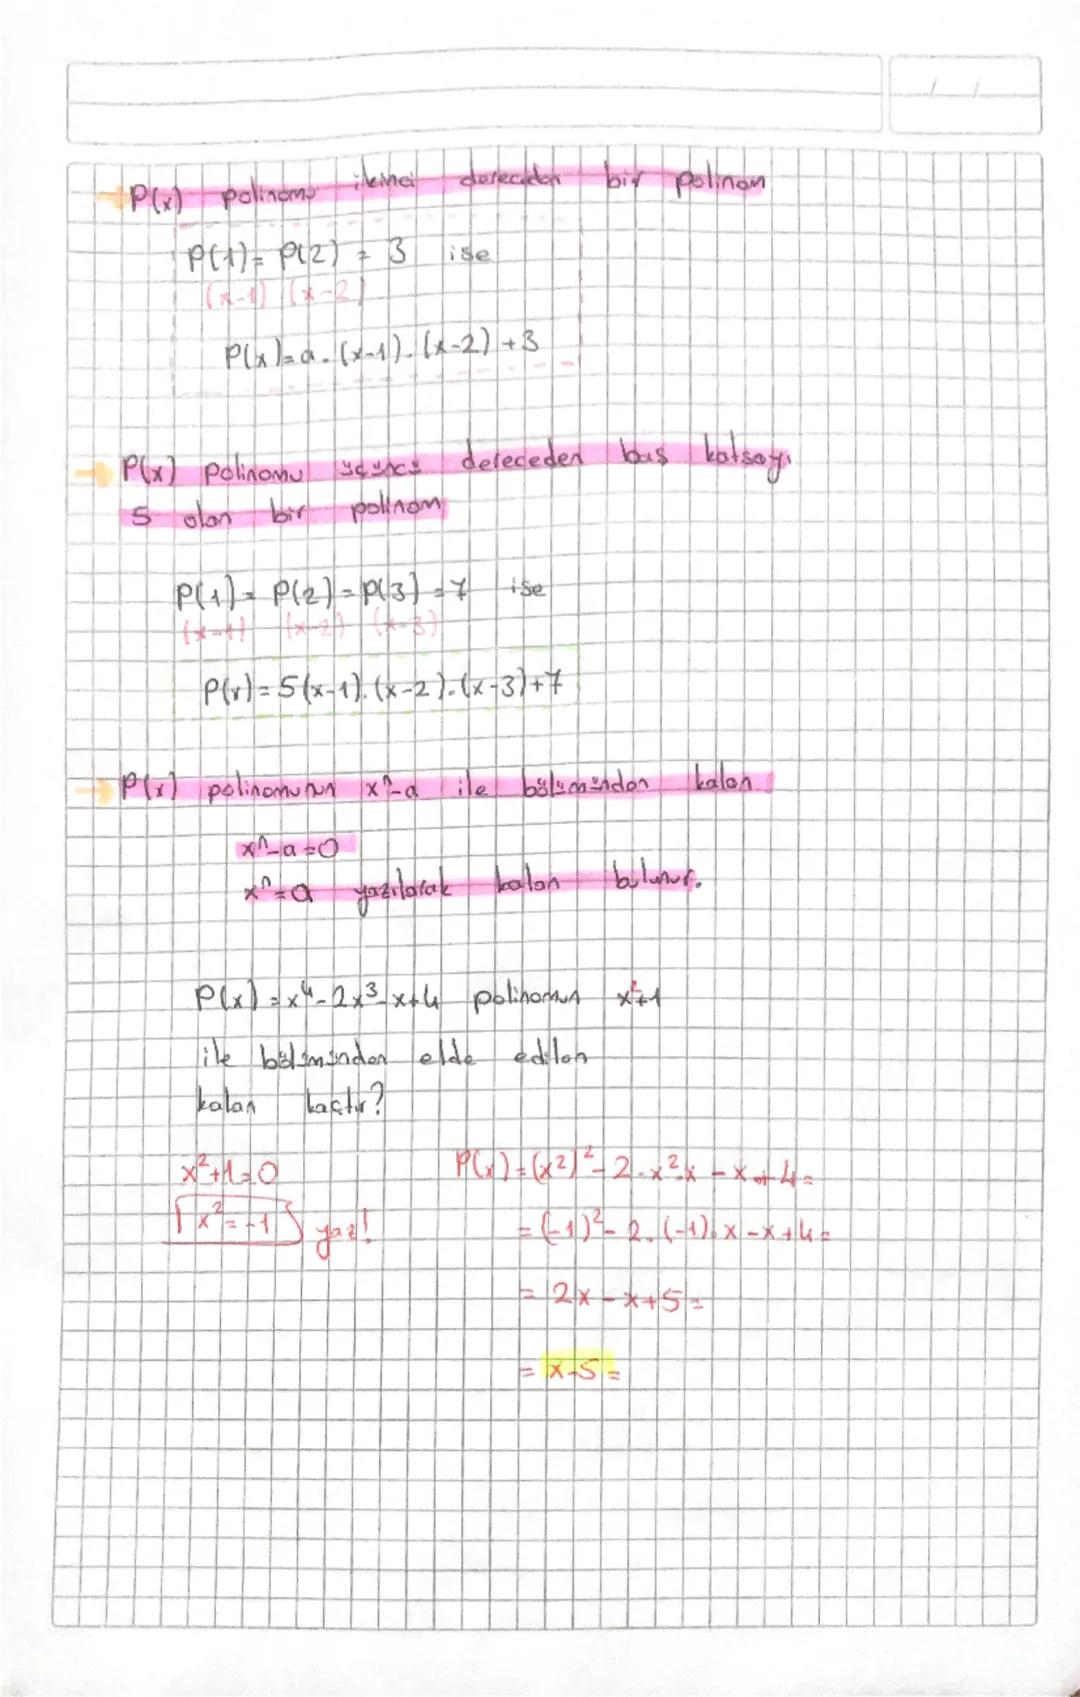 P(x) polinomu ikinci dereceden bir polinom
P(1) = P(2) = 3 ise
(x-1) (x-2)
P(x) = a.(x-1).(x-2)+3
P(x) polinomu üçüncü dereceden baş katsayı
5 olan bir polinom
P(1) = P(2) = P(3) = 7 ise
(x-1) (x-2) (x-3)
P(x) = 5(x-1).(x-2).(x-3)+7
P(x) polinomunun xⁿ-a ile bölümünden kalan
xⁿ-a=0
xⁿ=a yazılarak kalan bulunur.
P(x) = x⁴-2x³-x+4 polinomun x²+1
ile bölümünden elde edilen
kalan kaçtır?
x²+1=0
x²=-1 yaz!
P(x) = (x²)²-2.x².x-x+4=
= (-1)²-2.(-1).x-x+4=
= 2x-x+5=
= x-5=